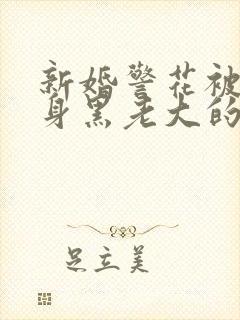 新婚警花被
身黑老大的
足立美